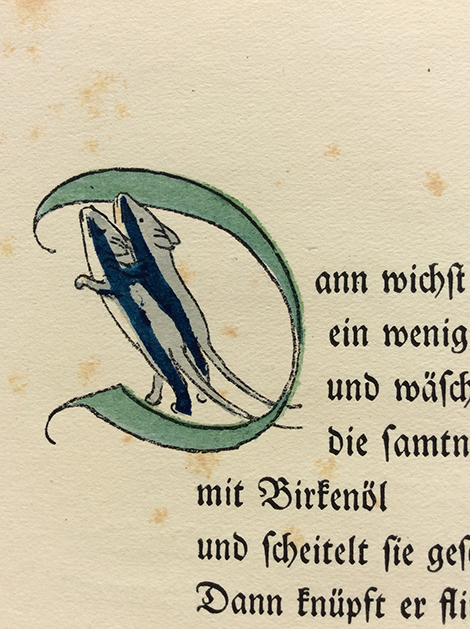 Dann wichſt
ein wenig
und wäſch
die ſamtn
mit Birkenöl
und ſcheitelt ſie geſ
Dann knüpft er fli